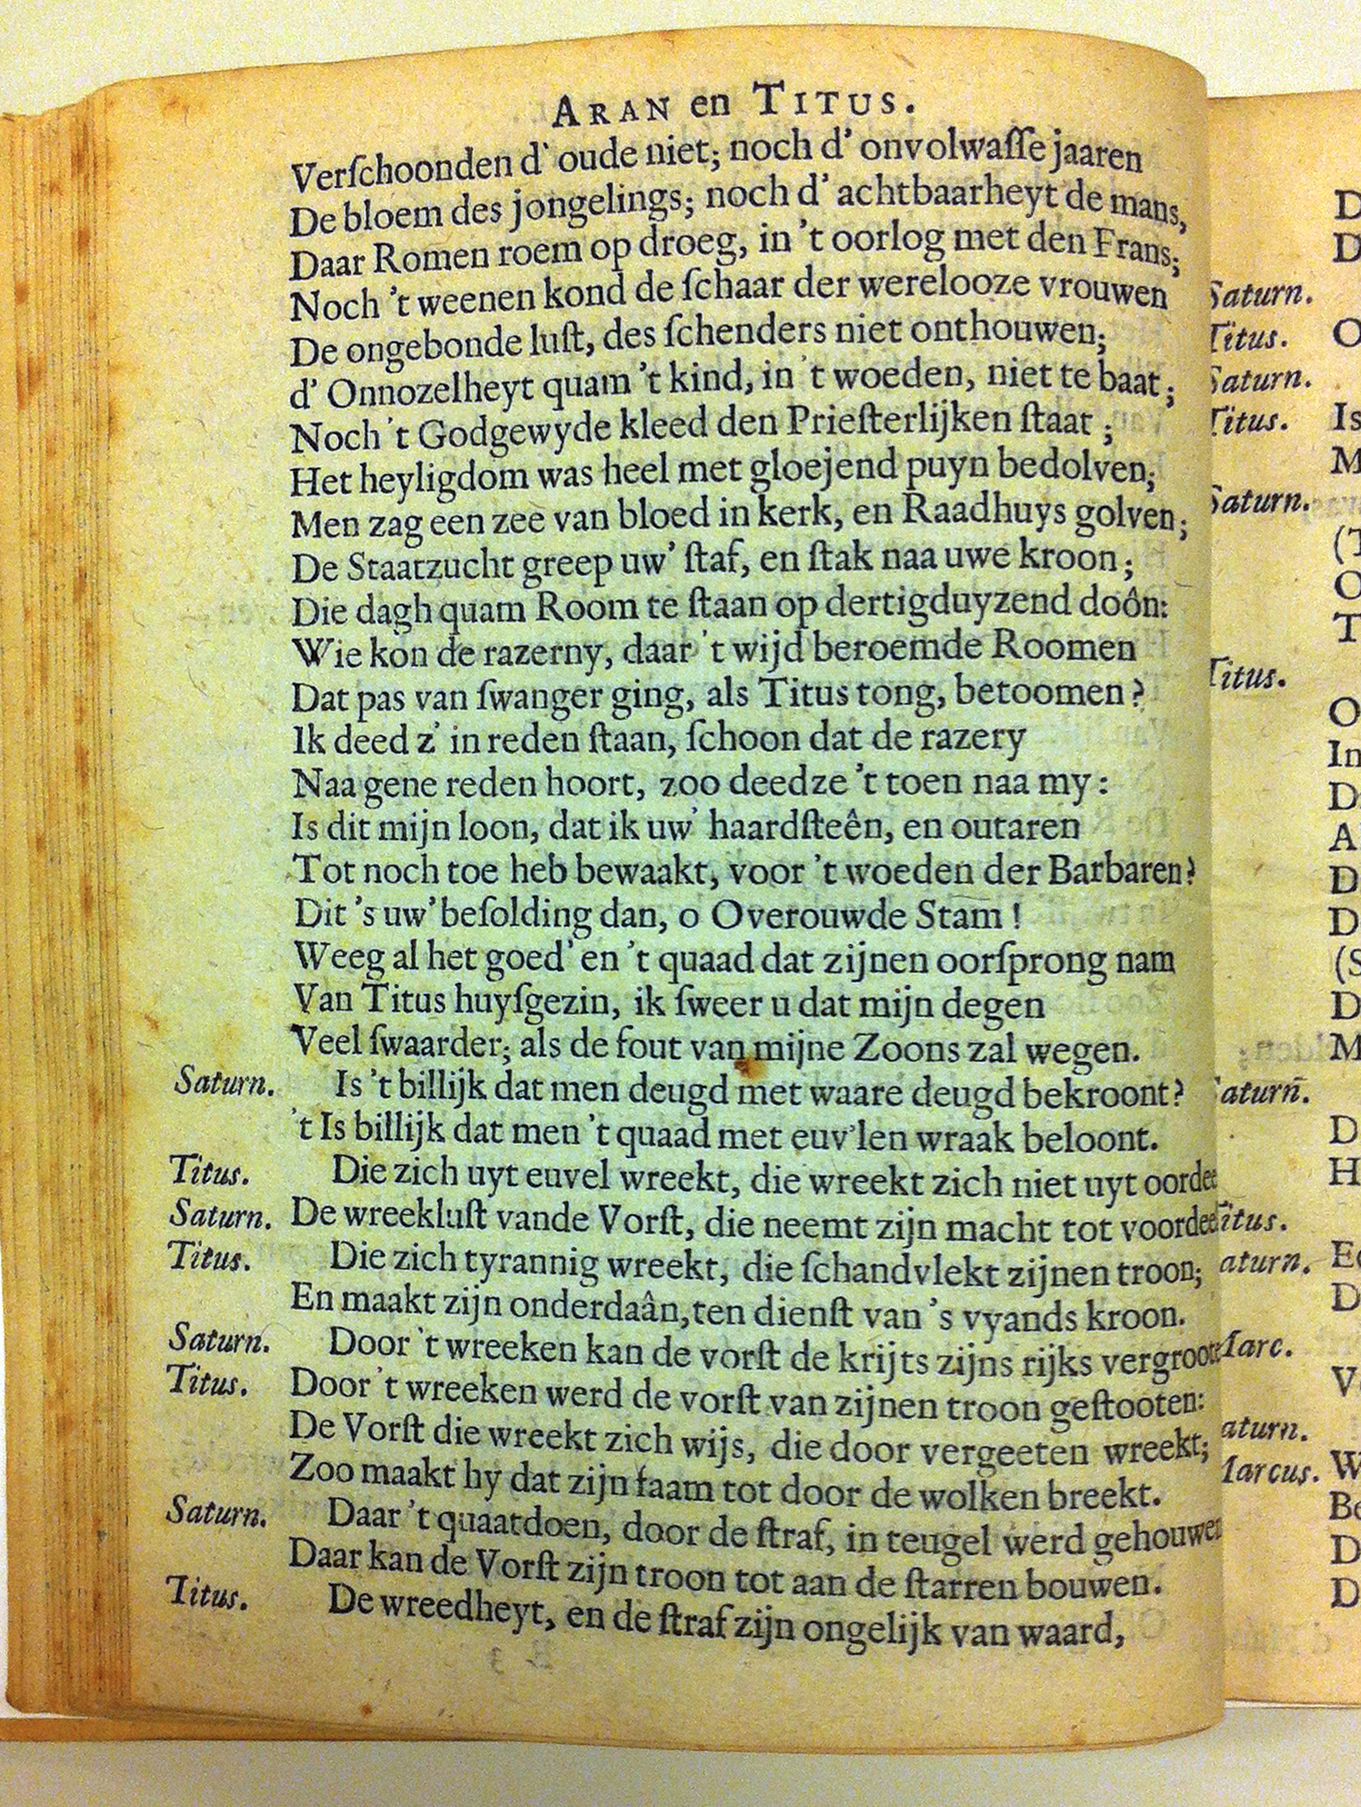 ARAN en TITUS.
Verſchoonden d' oude niet; noch d' onvolwaſſe jaaren
De bloem des jongelings; noch d' achtbaarheyt de mans,
Daar Romen roem op droeg, in 't oorlog met den Frans;
Noch 't weenen kond de ſchaar der werelooze vrouwen
De ongebonde luſt, des ſchenders niet onthouwen;
d' Onnozelheyt quam 't kind, in 't woeden, niet te baat;
Noch 't Godgewyde kleed den Prieſterlijken ſtaat;
Het heyligdom was heel met gloejend puyn bedolven;
Men zag een zee van bloed in kerk, en Raadhuys golven;
De Staatzucht greep uw' ſtaf, en ſtak naa uwe kroon;
Die dagh quam Room te ſtaan op dertigduyzend doôn:
Wie kon de razerny, daar 't wijd beroemde Roomen
Dat pas van ſwanger ging, als Titus tong, betoomen?
Ik deed z' in reden ſtaan, ſchoon dat de razery
Naa gene reden hoort, zoo deedze 't toen naa my:
Is dit mijn loon, dat ik uw' haardſteên, en outaren
Tot noch toe heb bewaakt, voor 't woeden der Barbaren?
Dit 's uw' beſolding dan, o Overouwde Stam!
Weeg al het goed' en 't quaad dat zijnen oorſprong nam
Van Titus huyſgezin, ik ſweer u dat mijn degen
Veel ſwaarder; als de fout van mijne Zoons zal wegen.
Saturn. Is 't billijk dat men deugd met waare deugd bekroont?
't Is billijk dat men 't quaad met euv'len wraak beloont.
Titus. Die zich uyt euvel wreekt, die wreekt zich niet uyt oordee
Saturn. De wreekluſt vande Vorſt, die neemt zijn macht tot voordee
Titus. Die zich tyrannig wreekt, die ſchandvlekt zijnen troon;
En maakt zijn onderdaân, ten dienſt van 's vyands kroon.
Saturn. Door 't wreeken kan de vorſt de krijts zijns rijks vergroote
Titus. Door 't wreeken werd de vorſt van zijnen troon geſtooten:
De Vorſt die wreekt zich wijs, die door vergeeten wreekt;
Zoo maakt hy dat zijn faam tot door de wolken breekt.
Saturn. Daar 't quaatdoen, door de ſtraf, in teugel werd gehouwen
Daar kan de Vorſt zijn troon tot aan de ſtarren bouwen.
Titus. De wreedheyt, en de ſtraf zijn ongelijk van waard,
D
D
Saturn.
Titus. O
Saturn.
Titus. Is
M
Saturn.
(T
O
T
Titus.
O
In
D
A
D
D
(S
D
M
aturn.
D
H
itus.
aturn. Ee
D
arc.
V
aturn.
arcus. W
Be
D
D